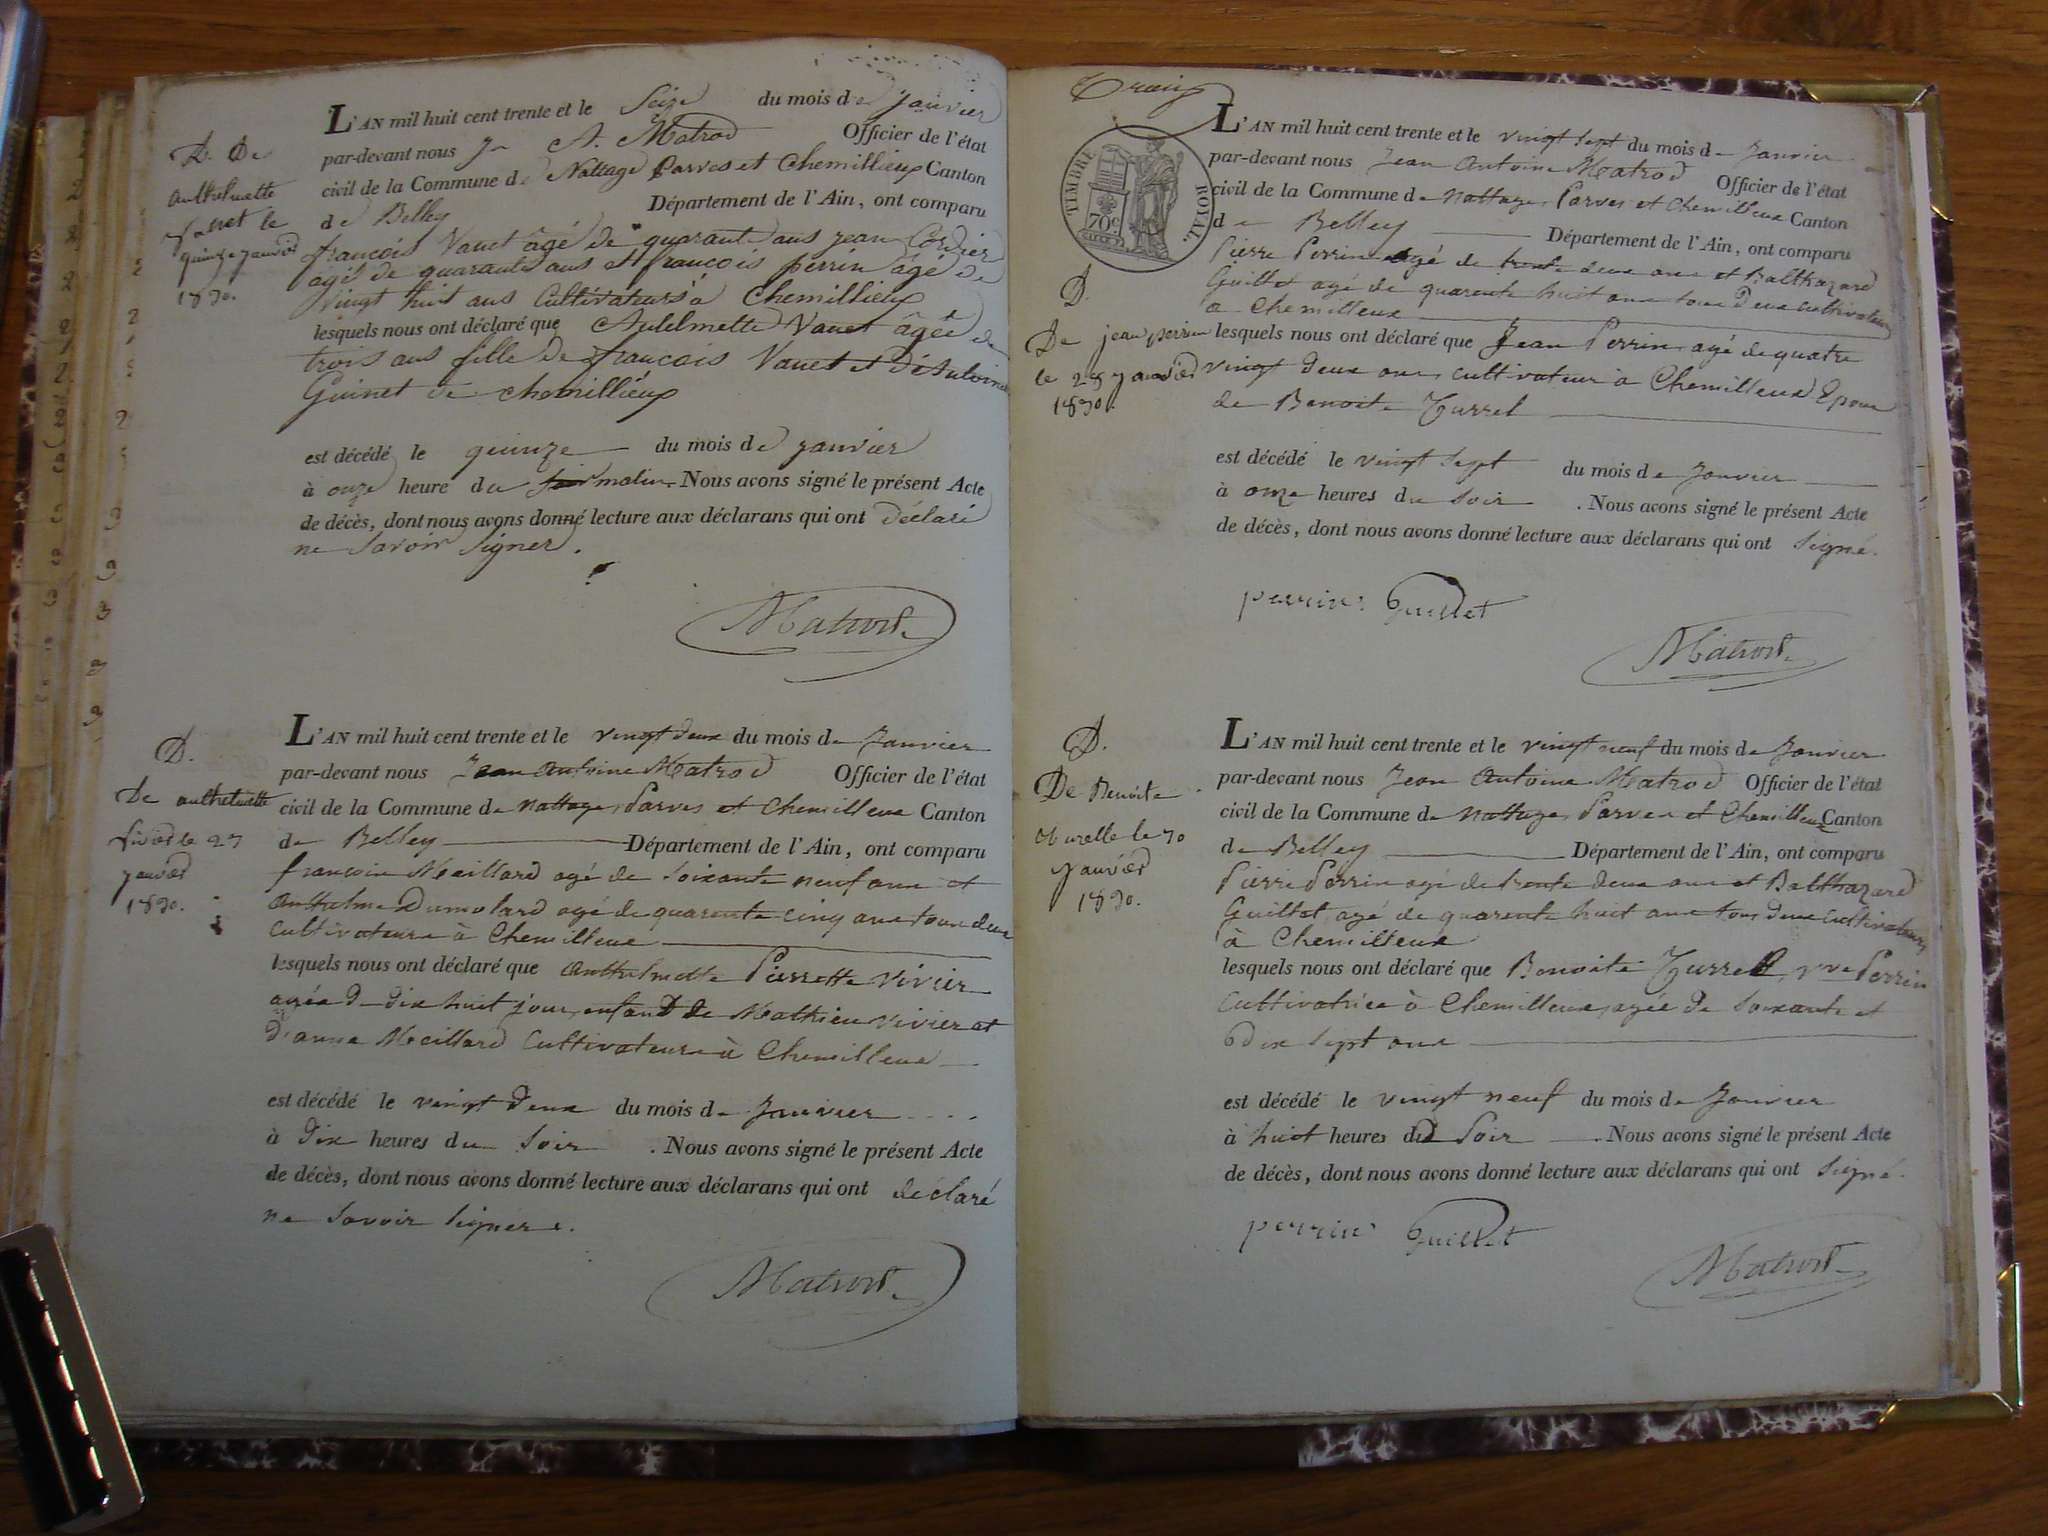 L'AN mil huit cent trente et le Seize du mois de janvier
par-devant nous Jn A. Matrod Officier de l'état
civil de la Commune de Nattage Parves et Chemillieux Canton
de Belley Département de l'Ain, ont comparu
françois Vauet âgé de quarante ans jean Cordier
âgé de quarante ans et françois perrin âgé de
vingt huit ans Cultivateurs à Chemillieux
lesquels nous ont déclaré que Vauet âgée de
trois ans fille de françois Vauet et
Guinet de chemillieux
est décédé le quinze du mois de janvier
à onze heure du matin. Nous avons signé le présent Acte
de décès, dont nous avons donné lecture aux déclarans qui ont déclaré
ne savoir signer.
Matrod
D. De
anthelmette
le
quinze janvier
1830.
L'AN mil huit cent trente et le vingt deux du mois de Janvier
par-devant nous Jean Antoine Matrod Officier de l'état
civil de la Commune de Nattages Parves et Chemilleux Canton
de Belley Département de l'Ain, ont comparu
françois Meillard agé de soixante neuf ans et
Anthelme Dumolard agé de quarente cinq ans tous deux
Cultivateurs à Chemilleux
lesquels nous ont déclaré que Anthelmette Pierrette Vivier
agée de dix huit jours enfant de Mathieu Vivier et
d'anne Meillard Cultivateurs à Chemilleux
est décédé le vingt deux du mois de Janvier
à dix heures du soir. Nous avons signé le présent Acte
de décès, dont nous avons donné lecture aux déclarans qui ont déclaré
ne savoir signer.
Matrod
D.
De anthelmette
le 23
janvier
1830.
TIMBRE ROYAL.
70c
L'AN mil huit cent trente et le vingt sept du mois de Janvier
par-devant nous Jean Antoine Matrod Officier de l'état
civil de la Commune de Nattages Parves et Chemilleux Canton
de Belley Département de l'Ain, ont comparu
Pierre Perrin agé de trente deux ans et Balthazard
Guillet agé de quarente huit ans tous deux cultivateurs
à Chemilleux
lesquels nous ont déclaré que Jean Perrin, agé de quatre
vingt deux ans, cultivateur à Chemilleux Epoux
de Benoite Turrel
est décédé le vingt sept du mois de Janvier
à onze heures du soir. Nous avons signé le présent Acte
de décès, dont nous avons donné lecture aux déclarans qui ont signé.
perrin Guillet
Matrod
D.
De jean perrin
le 28 janvier
1830.
L'AN mil huit cent trente et le vingt neuf du mois de Janvier
par-devant nous Jean Antoine Matrod Officier de l'état
civil de la Commune de Nattages Parves et Chemilleux Canton
de Belley Département de l'Ain, ont comparu
Pierre Perrin agé de trente deux ans et Balthazard
Guillet, agé de quarente huit ans tous deux cultivateurs
à Chemilleux
lesquels nous ont déclaré que Benoite Turrel, vve Perrin
Cultivatrice à Chemilleux, agée de soixante et
dix sept ans
est décédé le vingt neuf du mois de Janvier
à huit heures du Soir. Nous avons signé le présent Acte
de décès, dont nous avons donné lecture aux déclarans qui ont signé.
perrin Guillet
Matrod
D.
De Benoite
le 30
janvier
1830.